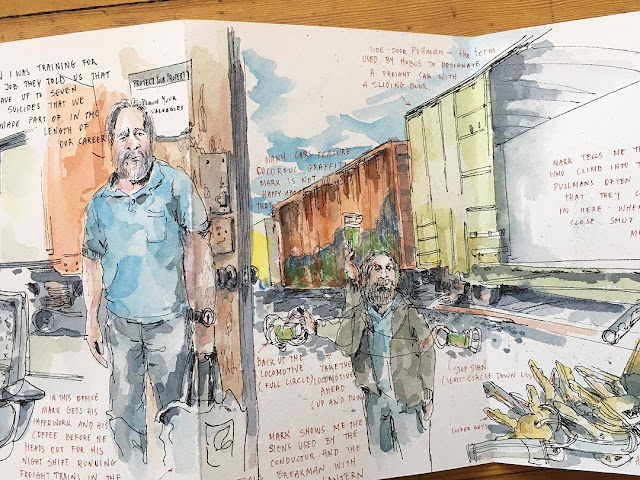 N I WAS TRAINING FOR
JOB THEY TOLD US THAT
AVE UP TO SEVEN
SUICIDES THAT WE
MADE PART OF IN THE
LENGTH OF
OUR CAREER
PROTECT YOUR PROPERTY
YOUR
VALUABLES
SIDE-DOOR PULLMAN - the term
USED BY HOBOS TO DESIGNATE
A FREIGHT CAR WITH
A SLIDING DOOR
MANY CARS FEATURE
COLORFUL GRAFFITI
MARK IS NOT
HAPPY
MARK TELLS ME TH
WHO CLIMB INTO
PULLMANS OFTEN
THAT THEY
IN HERE - WHEN
CLOSE SHUT
BACK UP THE
LOCOMOTIVE
(FULL CIRCLE)
TAKE THE
LOCOMOTIVE
AHEAD
(UP AND DOWN
STOP SIGN
(SEMI-CIRCLE DOWN LOW
LOCKER KEYS
IN THIS OFFICE
MARK GETS HIS
PAPERWORK AND HIS
COFFEE BEFORE HE
HEADS OUT FOR HIS
NIGHT SHIFT RUNNING
FREIGHT TRAINS IN THE
MARK SHOWS ME THE
SIGNS USED BY THE
CONDUCTOR AND THE
BREAKMAN WITH
LANTERN